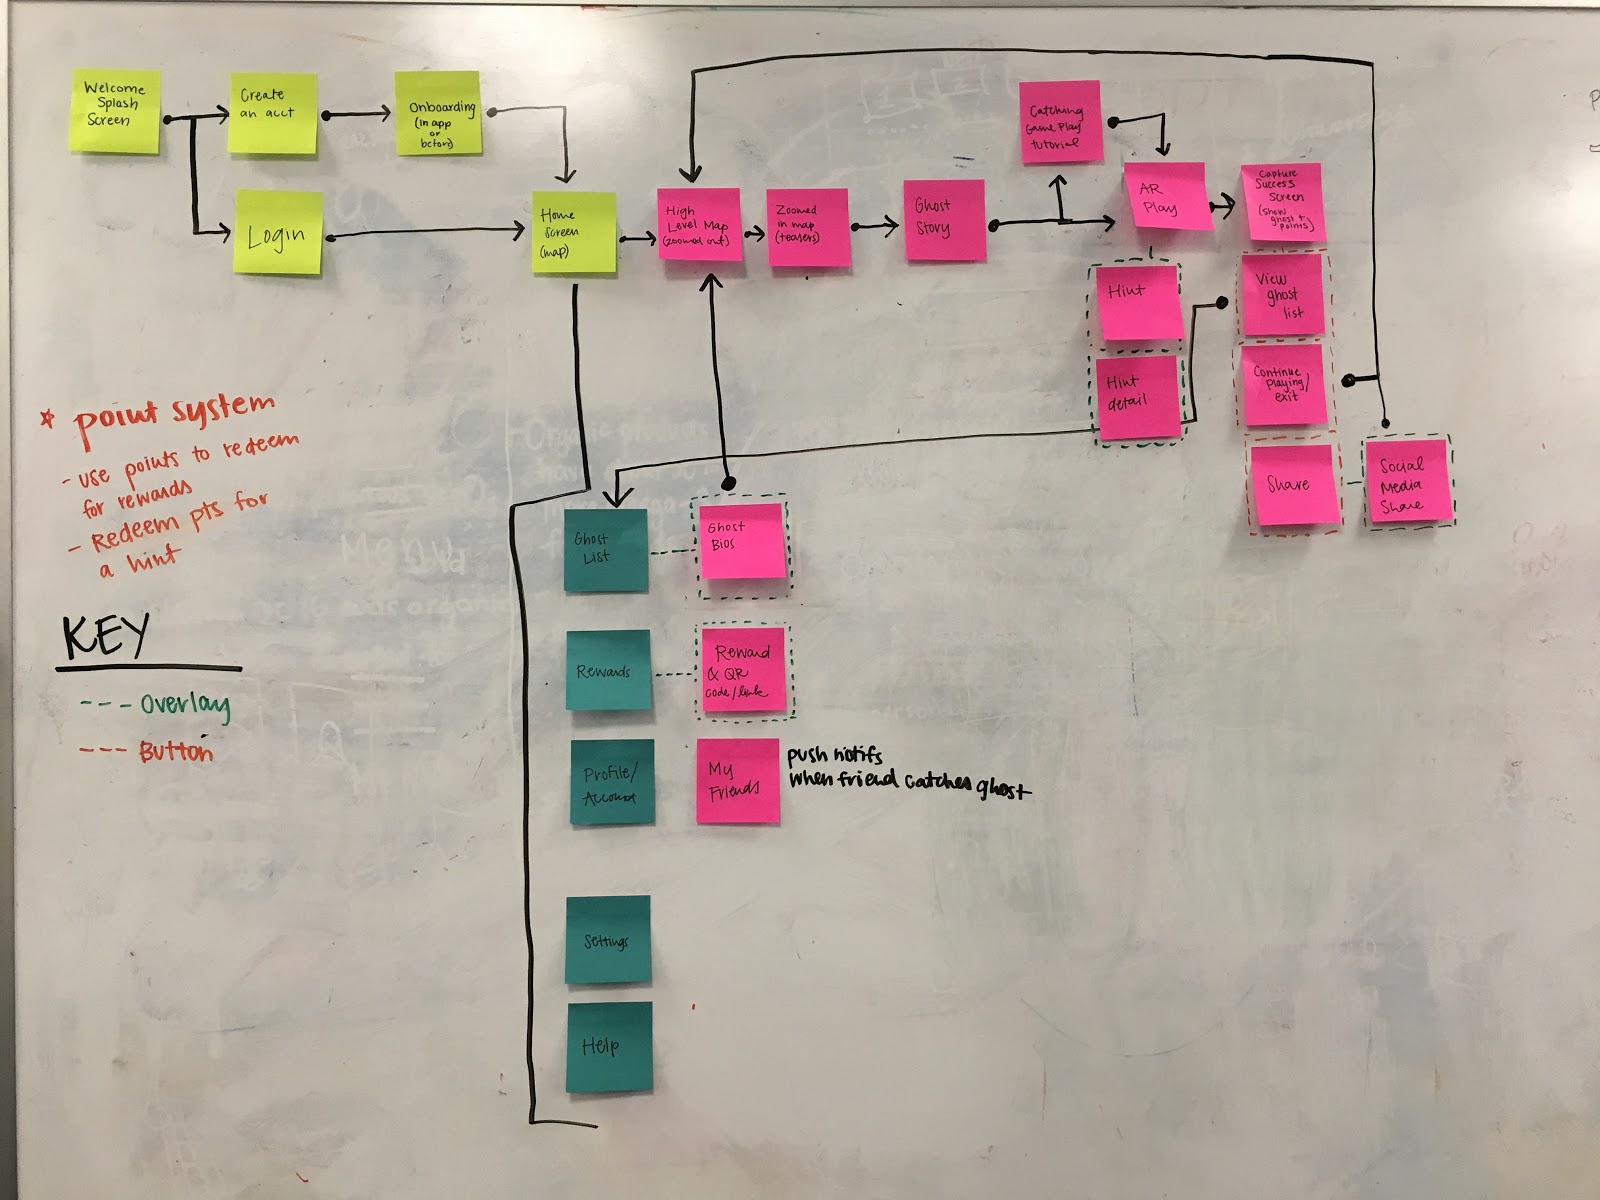 Welcome
Splash
Screen
Create
an acct
Onboarding
(in app
or
before)
Login
Home
Screen
(map)
High
Level Map
(zoomed out)
Zoomed
in map
(teasers)
Ghost
Story
Catching
Game Play
tutorial
AR
Play
Capture
Success
Screen
(show
ghost +
points)
Hint
Hint
detail
View
ghost
list
Continue
playing/
exit
Share
Social
Media
Share
* point system
- use points to redeem
for rewards
- Redeem pts for
a hint
KEY
--- overlay
--- Button
Ghost
List
Ghost
Bios
Rewards
Reward
& QR
code/link
Profile/
Account
My
Friends
push notifs
when friend catches ghost
Settings
Help